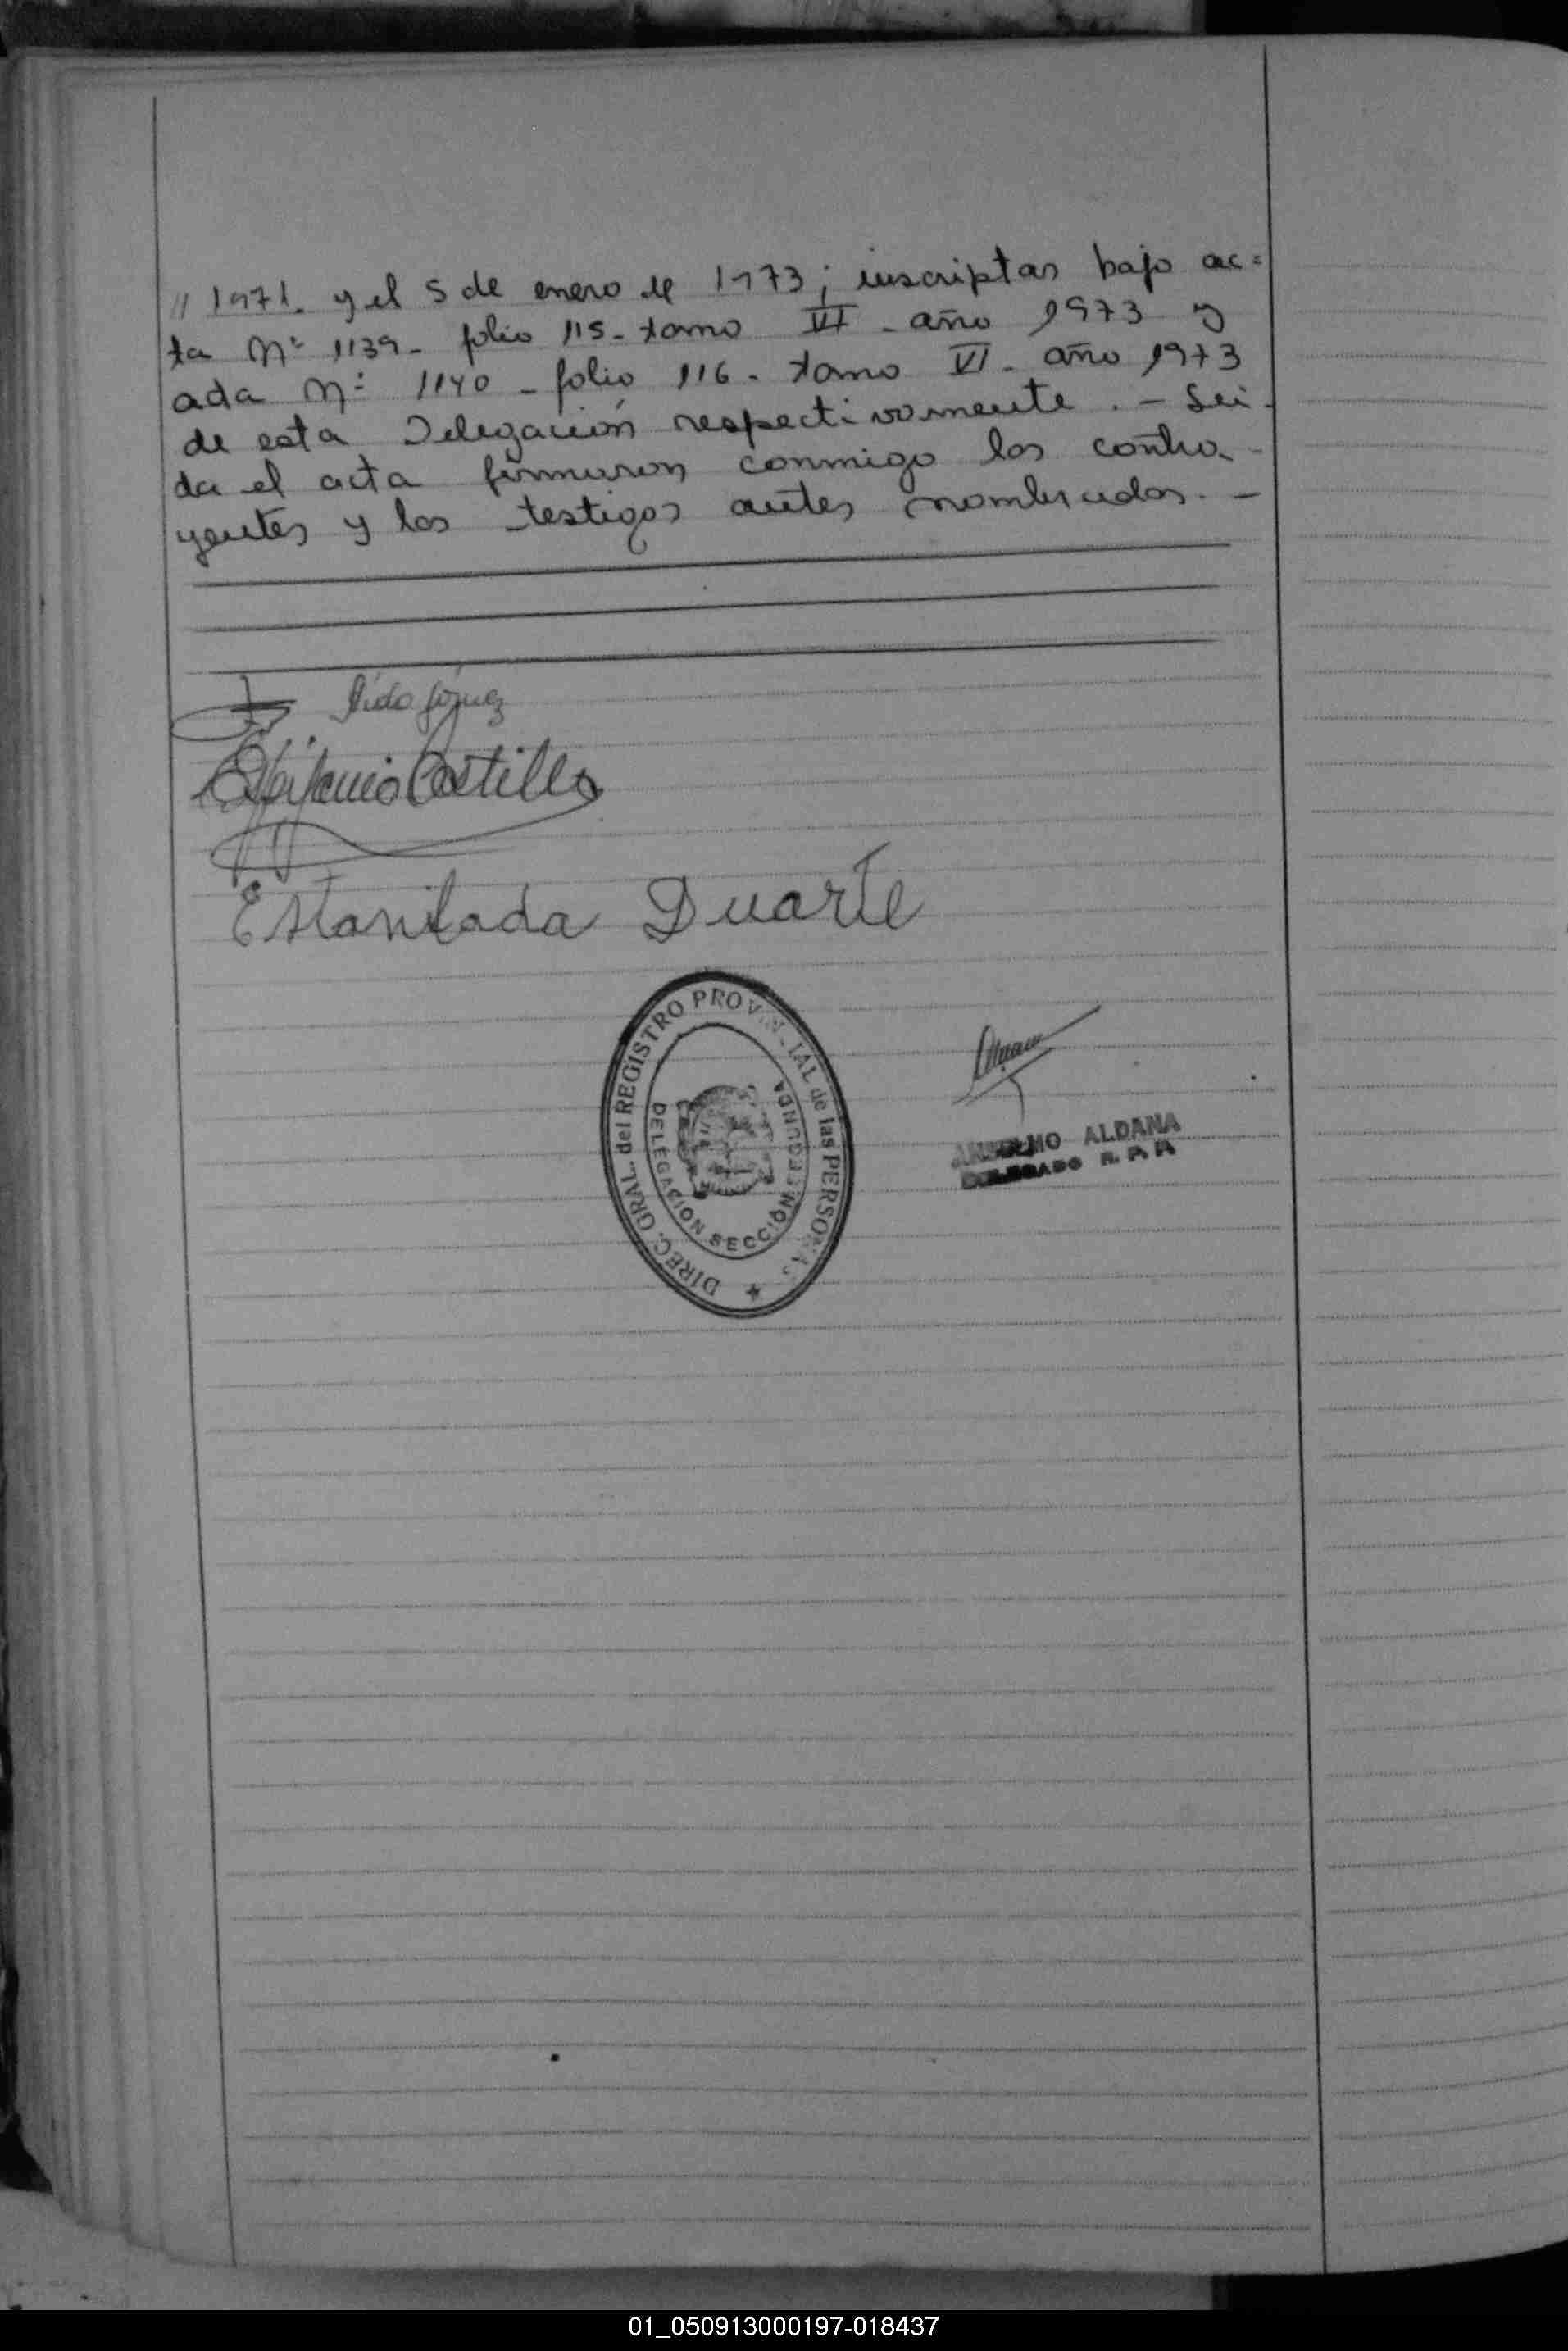 // 1971. y el 5 de enero de 1973; inscriptas bajo ac=
ta Nº 1139- folio 115- tomo VI - año 1973 y
acta Nº 1140 - folio 116 - tomo VI - año 1973
de esta Delegación respectivamente. - Lei-
da el acta firmaron conmigo los contra-
yentes y los testigos antes nombrados. -
Lido Gómez
Epifanio Castillo
Estanilada Duarte
DIREC. GRAL. del REGISTRO PROVINCIAL de las PERSONAS
DELEGACION SECCIÓN SEGUNDA
ANSELMO ALDANA
DELEGADO R. P. P.
01_050913000197-018437